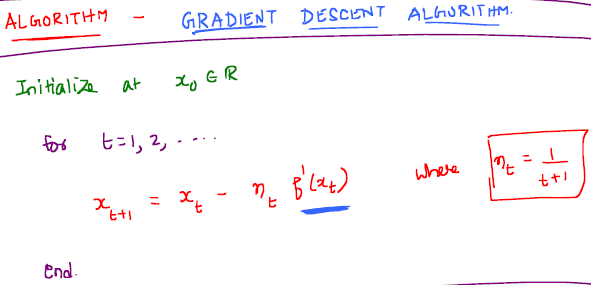 ALGORITHM - GRADIENT DESCENT ALGORITHM.
Initialize at x₀ ∈ ℝ
for t=1, 2, .....
x_{t+1} = x_t - η_t f'(x_t) where η_t = 1/(t+1)
end.